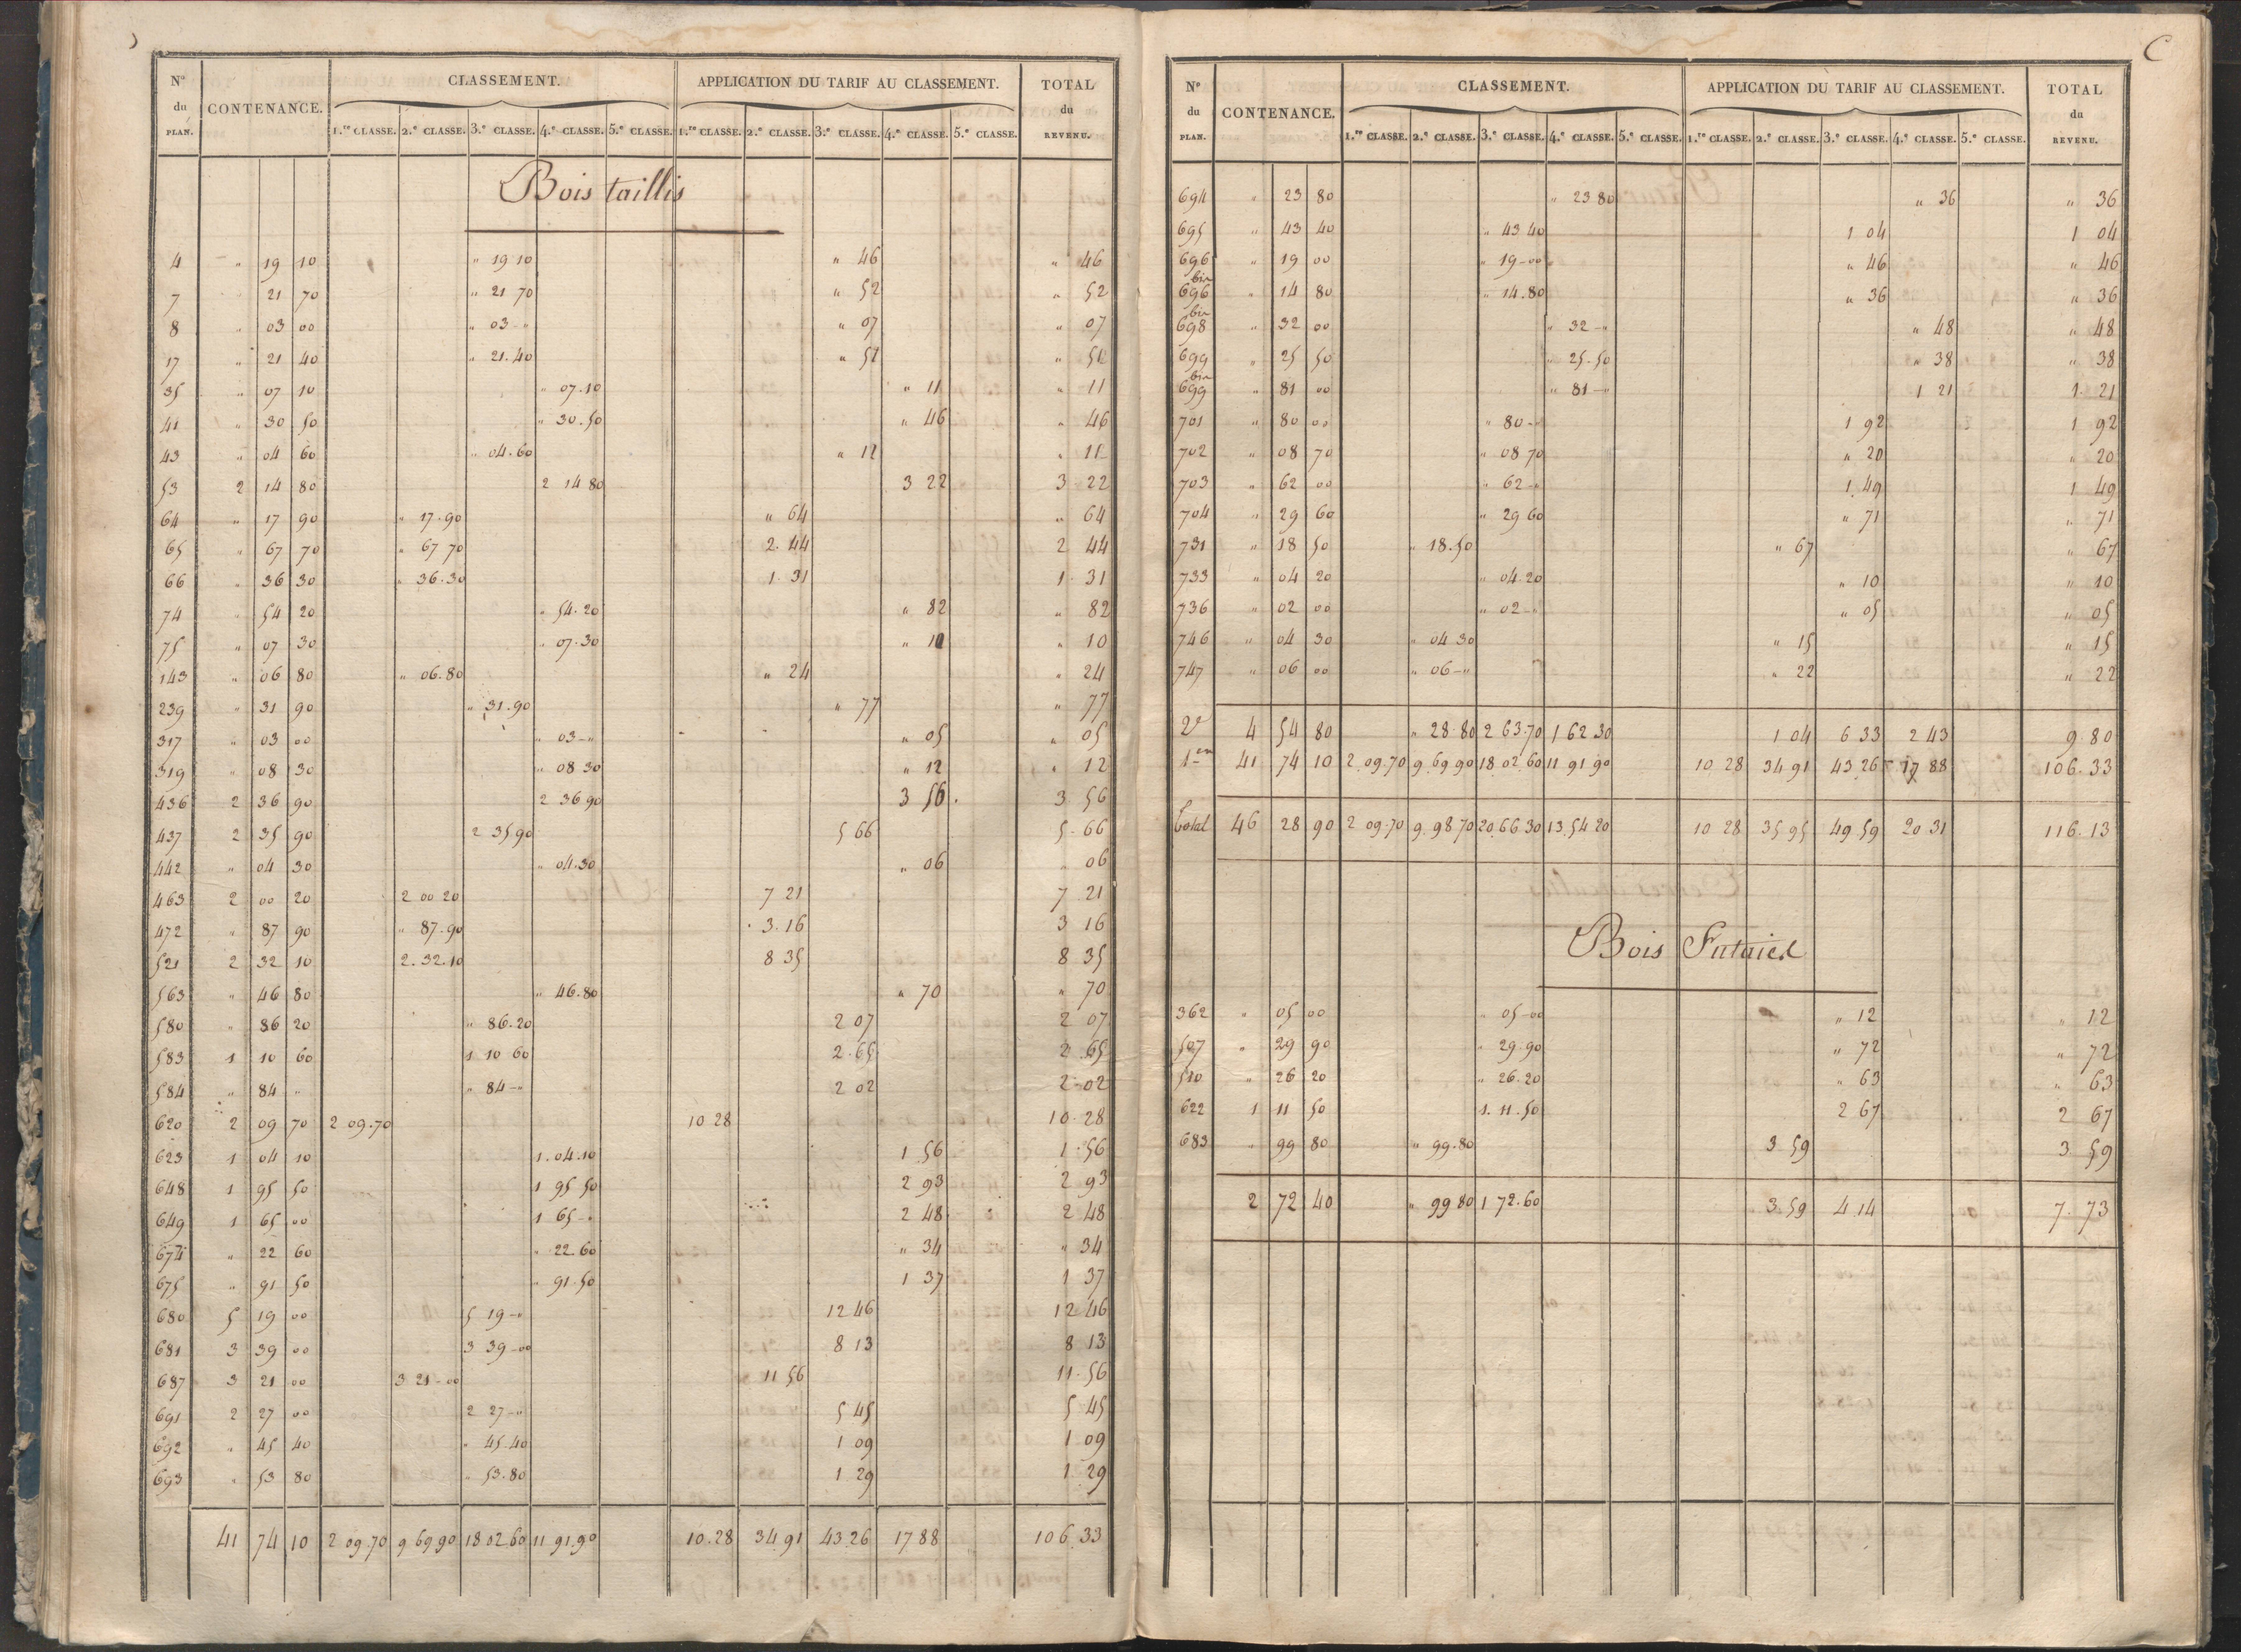 N.º du PLAN. CONTENANCE. CLASSEMENT. APPLICATION DU TARIF AU CLASSEMENT. TOTAL du REVENU.
1.re CLASSE. 2.e CLASSE. 3.e CLASSE. 4.e CLASSE. 5.e CLASSE. 1.re CLASSE. 2.e CLASSE. 3.e CLASSE. 4.e CLASSE. 5.e CLASSE.
Bois taillis
4 " 19 10 " 19 10 " 46 " 46
7 " 21 70 " 21 70 " 52 " 52
8 " 03 00 " 03 - " " 07 " 07
17 " 21 40 " 21.40 " 51 " 51
35 " 07 10 " 07.10 " 11 " 11
41 " 30 50 " 30.50 " 46 " 46
43 " 04 60 " 04.60 " 11 " 11
53 2 14 80 2 14 80 3 22 3 22
64 " 17 90 " 17.90 " 64 " 64
65 " 67 70 " 67 70 2.44 2 44
66 " 36 30 " 36.30 1.31 1.31
74 " 54 20 " 54.20 " 82 " 82
75 " 07 30 " 07.30 " 10 " 10
143 " 06 80 " 06.80 " 24 " 24
239 " 31 90 " 31.90 " 77 " 77
317 " 03 00 " 03 - " " 05 " 05
319 " 08 30 " 08 30 " 12 " 12
436 2 36 90 2 36 90 3 56 3 56
437 2 35 90 2 35 90 5 66 5.66
442 " 04 30 " 04.30 " 06 " 06
463 2 00 20 2 00 20 7 21 7 21
472 " 87 90 " 87.90 3.16 3 16
521 2 32 10 2.32.10 8 35 8 35
563 " 46 80 " 46.80 " 70 " 70
580 " 86 20 " 86.20 2 07 2 07
583 1 10 60 1 10 60 2.65 2.65
584 " 84 " " 84 - " 2 02 2-02
620 2 09 70 2 09.70 10 28 10.28
623 1 04 10 1.04.10 1 56 1.56
648 1 95 50 1 95 50 2 93 2 93
649 1 65 00 1 65 - " 2 48 2 48
674 " 22 60 " 22 60 " 34 " 34
675 " 91 50 " 91.50 1 37 1 37
680 5 19 00 5 19 - " 12 46 12 46
681 3 39 00 3 39 - 00 8 13 8 13
687 3 21 00 3 21 - 00 11 56 11.56
691 2 27 00 2 27 - " 5 45 5 45
692 " 45 40 " 45.40 1 09 1 09
693 " 53 80 " 53.80 1 29 1.29
41 74 10 2 09.70 9 69 90 18 02 60 11 91.90 10.28 34 91 43 26 17 88 106.33
C
N.º du PLAN. CONTENANCE. CLASSEMENT. APPLICATION DU TARIF AU CLASSEMENT. TOTAL du REVENU.
1.re CLASSE. 2.e CLASSE. 3.e CLASSE. 4.e CLASSE. 5.e CLASSE. 1.re CLASSE. 2.e CLASSE. 3.e CLASSE. 4.e CLASSE. 5.e CLASSE.
694 " 23 80 " 23 80 " 36 " 36
695 " 43 40 " 43 40 1 04 1 04
696 " 19 00 " 19 - 00 " 46 " 46
696 bis " 14 80 " 14.80 " 36 " 36
698 bis " 32 00 " 32 - " " 48 " 48
699 " 25 50 " 25.50 " 38 " 38
699 bis " 81 00 " 81 - " 1 21 1.21
701 " 80 00 " 80 - " 1 92 1 92
702 " 08 70 " 08 70 " 20 " 20
703 " 62 00 " 62 - " 1.49 1 49
704 " 29 60 " 29 60 " 71 " 71
731 " 18 50 " 18.50 " 67 " 67
733 " 04 20 " 04.20 " 10 " 10
736 " 02 00 " 02 - " " 05 " 05
746 " 04 30 " 04 30 " 15 " 15
747 " 06 00 " 06 - " " 22 " 22
2e 4 54 80 " 28.80 2 63.70 1 62 30 1 04 6 33 2 43 9.80
1ere 41 74 10 2.09.70 9.69 90 18 02.60 11 91 90 10 28 34 91 43 26 17 88 106.33
Total 46 28 90 2 09.70 9.98 70 20.66.30 13.54.20 10 28 35 95 49 59 20 31 116.13
Bois Futaies
362 " 05 00 " 05-00 " 12 " 12
507 " 29 90 " 29.90 " 72 " 72
510 " 26 20 " 26.20 " 63 " 63
622 1 11 50 1.11.50 2 67 2 67
683 " 99 80 " 99.80 3 59 3 59
2 72 40 " 99 80 1 72.60 3.59 4 14 7.73